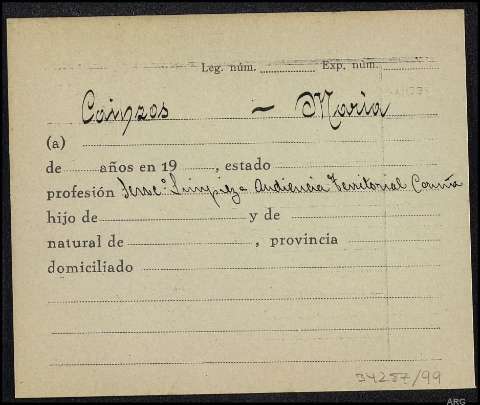 Leg. núm. Exp. núm.
Cainzos - Maria
(a)
de años en 19 , estado
profesión Servc.º Limpieza Audiencia Territorial Coruña
hijo de y de
natural de , provincia
domiciliado
34287/99
ARG